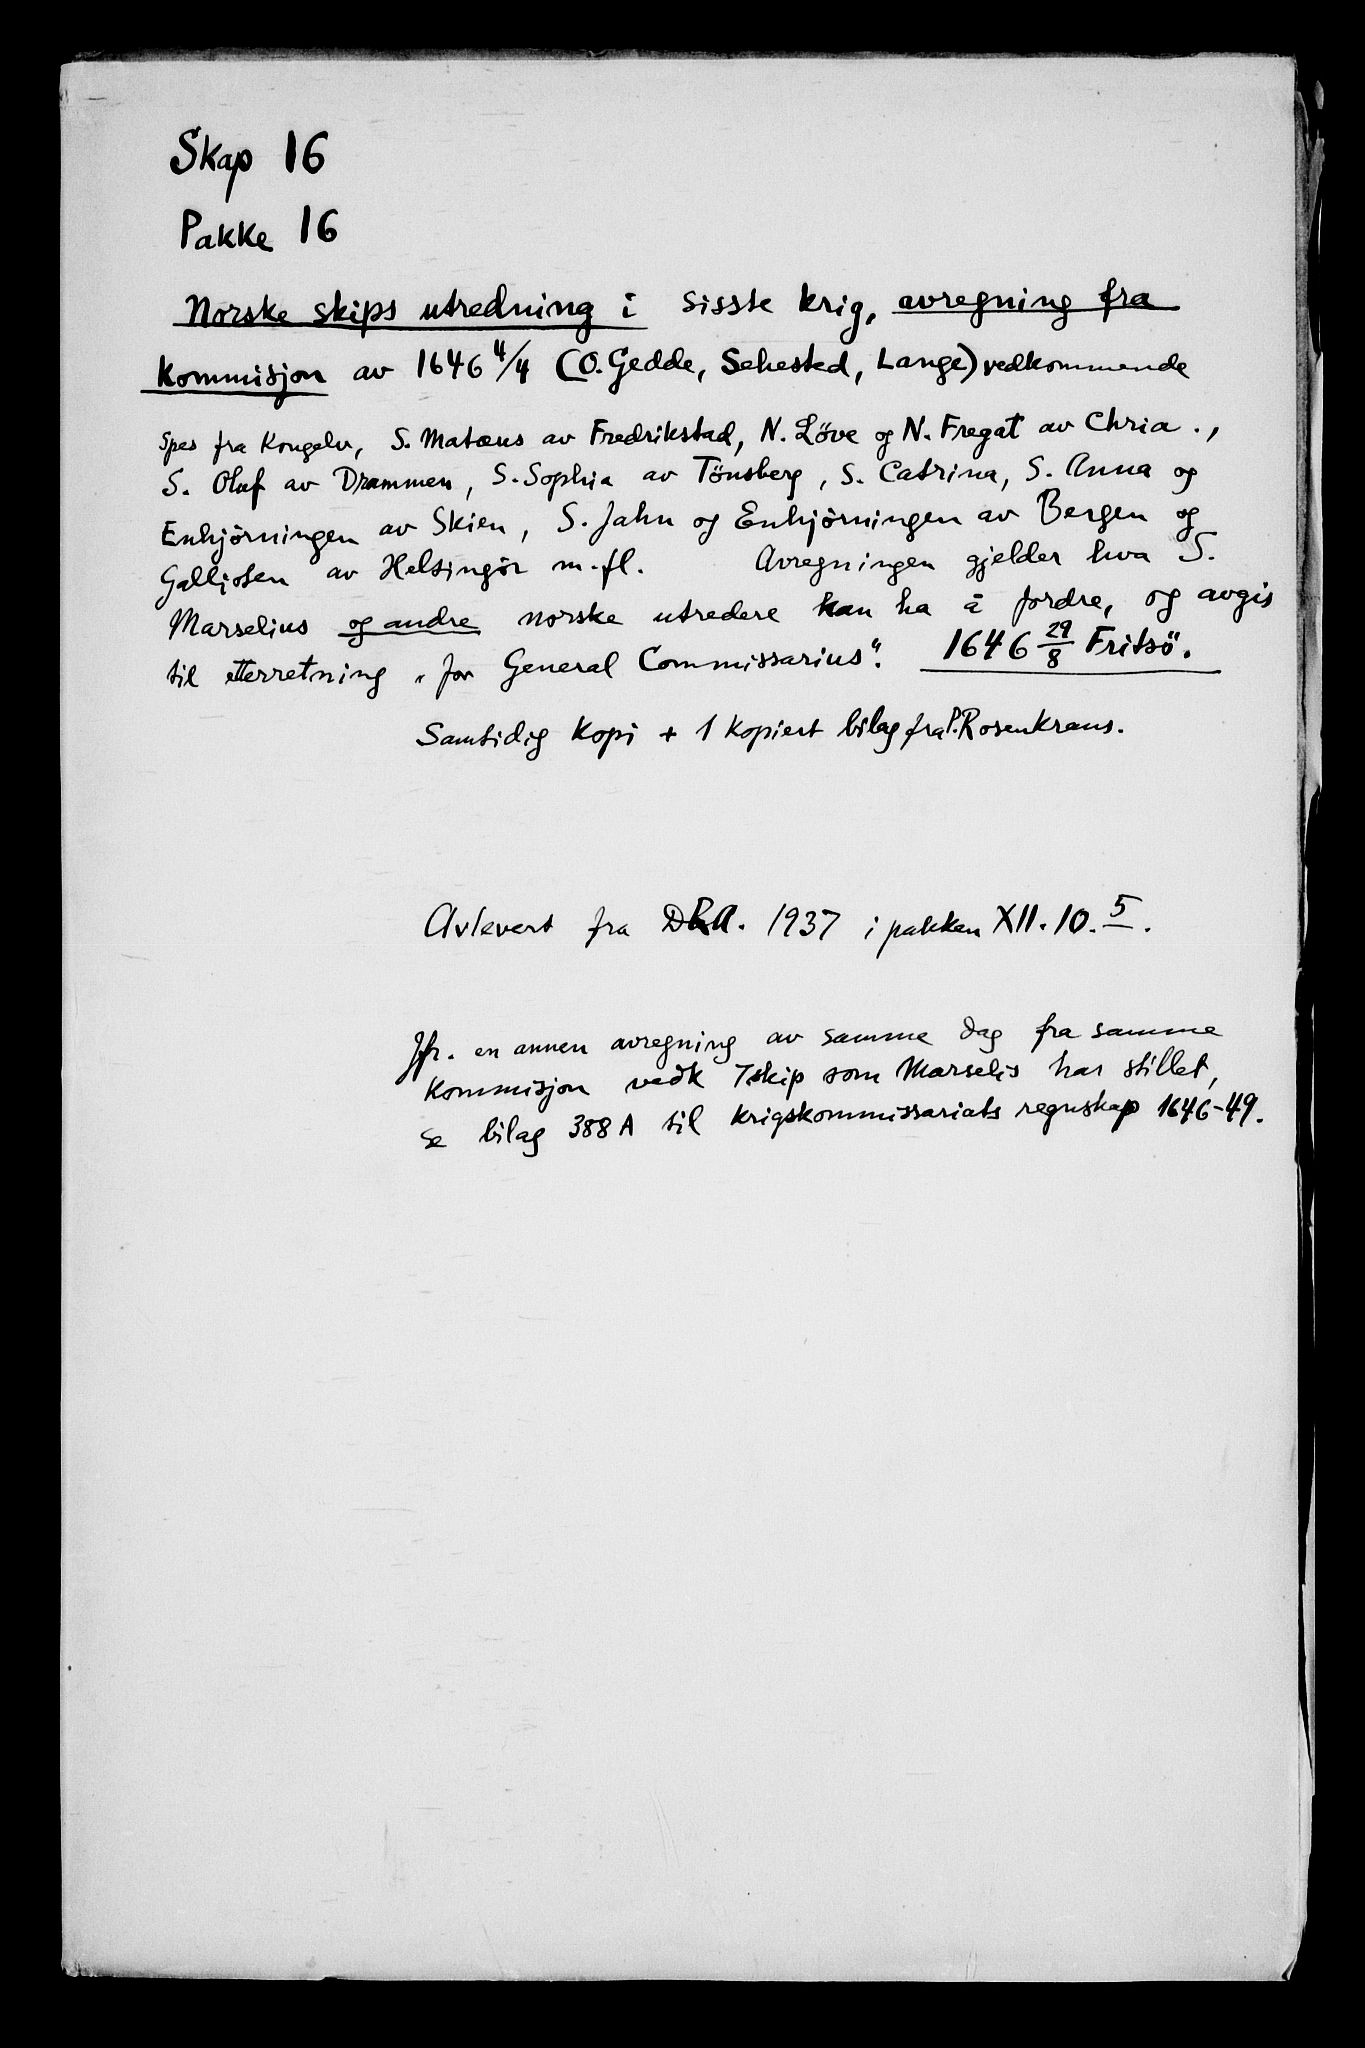 Skap 16
Pakke 16
Norske skips utredning i sisste krig, avregning fra
kommisjon av 1646 4/4 (O. Gedde, Sehested, Lange) vedkommende
Spes fra Kongelv, S. Matæus av Fredrikstad, N. Löve og N. Fregat av Chria.,
S. Oluf av Drammen, S. Sophia av Tönsberg, S. Catrina, S. Anna og
Enhjörningen av Skien, S. Jahn og Enhjörningen av Bergen og
Galljoten av Helsingör m.fl. Avregningen gjelder hva S.
Marselius og andre norske utredere kan ha å fordre, og avgis
til etterretning „for General Commissarius“. 1646 29/8 Fritsö.
Samtidig kopi + 1 kopiert bilag fra P. Rosenkrans.
Avlevert fra DRA. 1937 i pakken XII. 10. 5.
Jfr. en annen avregning av samme dag fra samme
kommisjon vedk 7 skip som Marselis har stillet,
se bilag 388 A til krigskommissariats regnskap 1646-49.